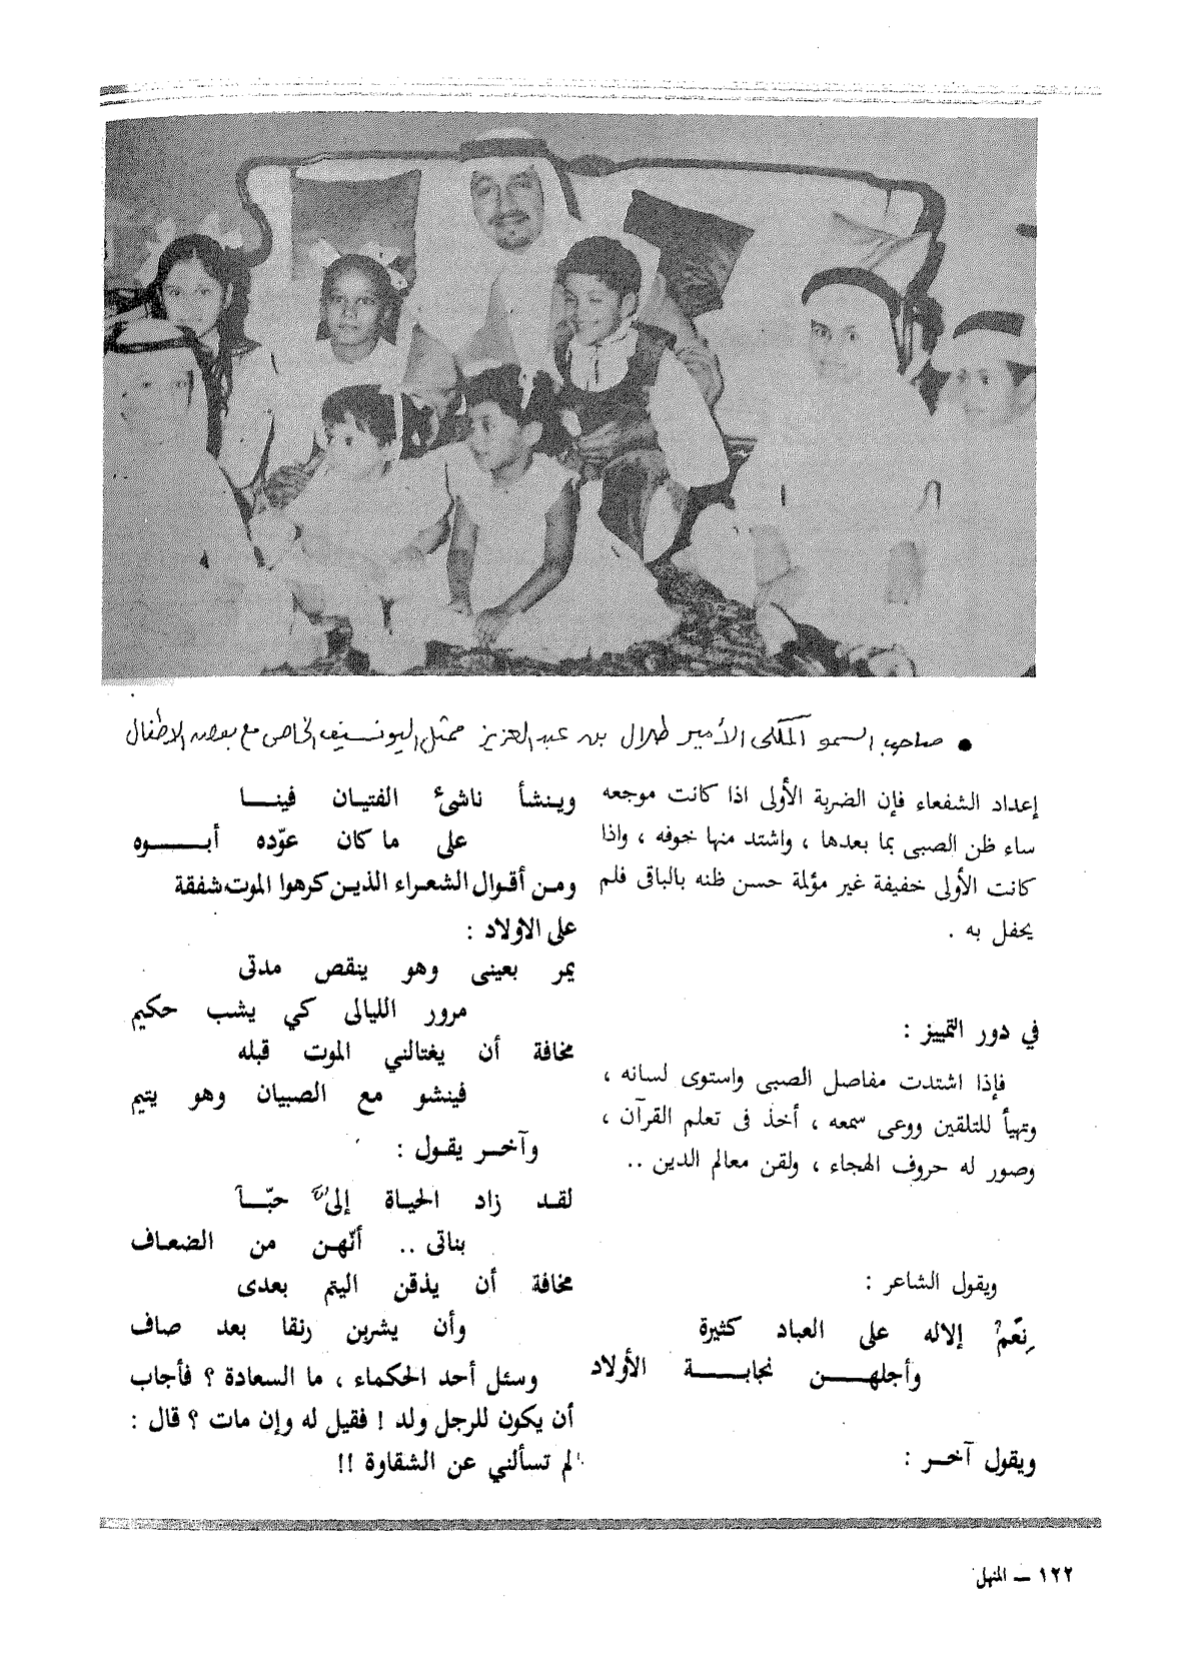 ● صاحب السمو الملكى الأمير طلال بن عبد العزيز ممثل اليونسيف الخاص مع بعض الاطفال
إعداد الشفعاء فإن الضربة الأولى اذا كانت موجعه
ساء ظن الصبى بما بعدها ، واشتد منها خوفه ، واذا
كانت الأولى خفيفة غير مؤلمة حسن ظنه بالباقى فلم
يحفل به .
في دور التمييز :
فإذا اشتدت مفاصل الصبى واستوى لسانه ،
وتهيأ للتلقين ووعى سمعه ، أخذ فى تعلم القرآن ،
وصور له حروف الهجاء ، ولقن معالم الدين ..
ويقول الشاعر :
نِعَمْ إلاله على العباد كثيرة
وأجلهـــن نجابــــة الأولاد
ويقول آخــر :
وينشأ ناشئ الفتيان فينــا
على ما كان عوّده أبــــوه
ومن أقوال الشعراء الذين كرهوا الموت شفقة
على الاولاد :
يمر بعينى وهو ينقص مدتى
مرور الليالى كي يشب حكيم
مخافة أن يغتالني الموت قبله
فينشو مع الصبيان وهو يتيم
وآخــر يقول :
لقد زاد الحياة إلىّ حبّــاً
بناتى .. أنّهن من الضعاف
مخافة أن يذقن اليتم بعدى
وأن يشربن رنقا بعد صاف
وسئل أحد الحكماء ، ما السعادة ؟ فأجاب
أن يكون للرجل ولد ! فقيل له وإن مات ؟ قال :
لم تسألني عن الشقاوة !!
١٢٢ ــ المنهل